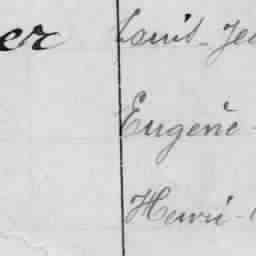 er Louis - Je
Eugène -
Henri -